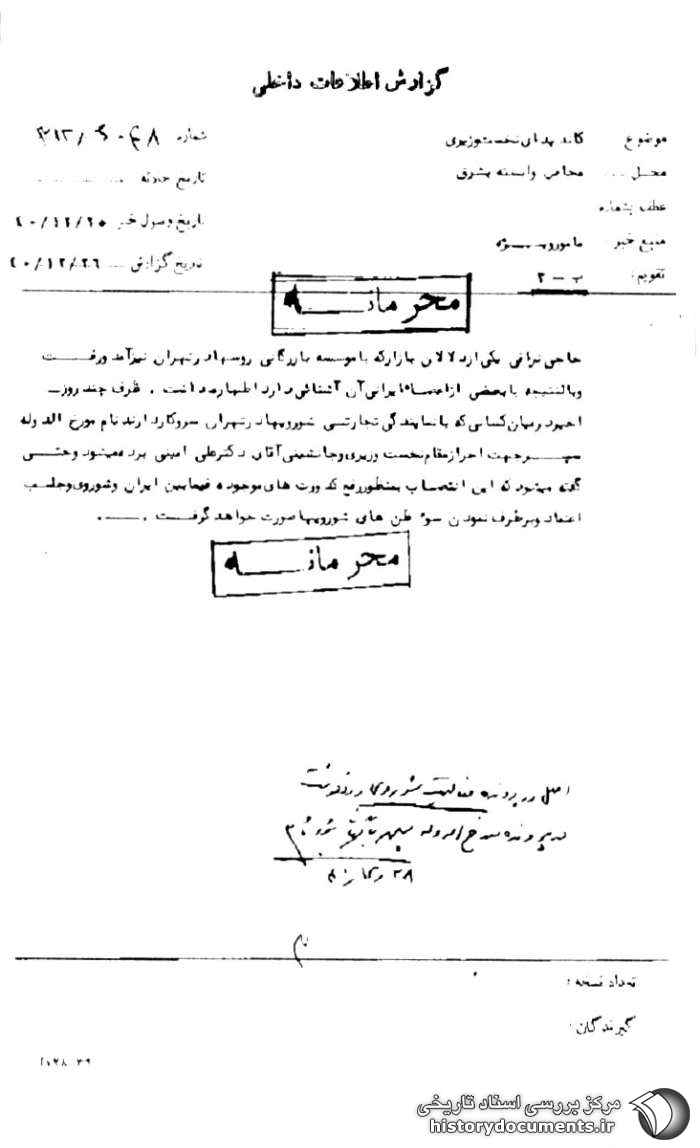 گزارش اطلاعات داخلی
موضوع کاندیدای نخست‌وزیری
شماره
محل ... محافل وابسته بشرق
تاریخ حادثه
عطف بشماره
تاریخ وصول خبر ۴۰/۱۲/۲۵
منبع خبر: مامور ویژه
تاریخ گزارش ... ۴۰/۱۲/۲۶
تقویم: ب – ۲
محرمانه
حاجی نراقی یکی از دلالان بازار که با موسسه بازرگانی روسها در تهران نیز آمد و رفت
و بالنتیجه با بعضی از اعضاء ایرانی آن آشنائی دارد اظهار میداشت . ظرف چند روز
اخیر در میان کسانی که با نمایندگی تجارتی شورویها در تهران سروکار دارند نام مورخ الدوله
سپهر جهت احراز مقام نخست وزیری و جانشینی آقای دکتر علی امینی برده میشود و حتی
گفته میشود که این انتصاب بمنظور رفع کدورت های موجوده فیمابین ایران و شوروی و جلب
اعتماد و برطرف نمودن سوء ظن های شورویها صورت خواهد گرفت .
محرمانه
اصل در پرونده فعالیت شوروی
در پرونده مورخ الدوله سپهر
تعداد نسخه :
گیرندگان :
مرکز بررسی اسناد تاریخی
historydocuments.ir